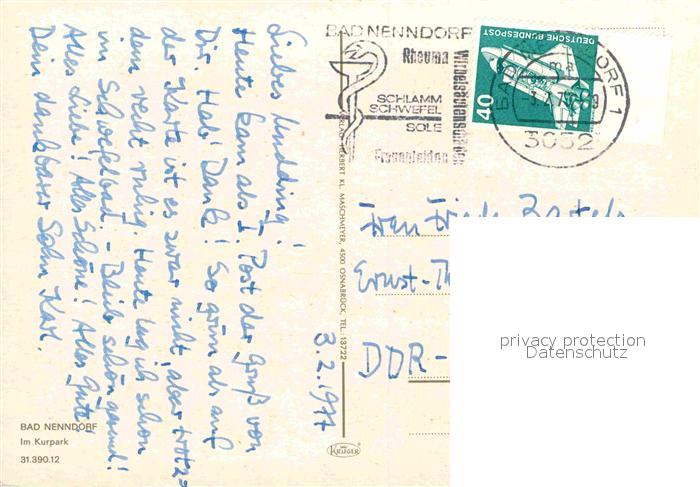 Liebes Mudding!
Heute kam als 1. Post der Gruß von
Dir. Hab' Dank! So grün als auf
der Karte ist es zwar nicht, aber trotz-
dem recht ruhig. Heute lag ich schon
im Schwefelbad. - Bleib schön gesund!
Alles Liebe! Alles Schöne! Alles Gute!
Dein dankbarer Sohn Karl.
3.2.1977
BAD NENNDORF
Im Kurpark
31.390.12
VERLAG HERBERT KL. MASCHMEYER, 4500 OSNABRÜCK, TEL. 13722
KRÜGER
BAD NENNDORF
Rheuma
Wirbelsäulenschäden
SCHLAMM
SCHWEFEL
SOLE
Frauenleiden
DEUTSCHE BUNDESPOST
40
BAD NENNDORF 1
3052
Frau
Ernst-Th
DDR-
privacy protection
Datenschutz